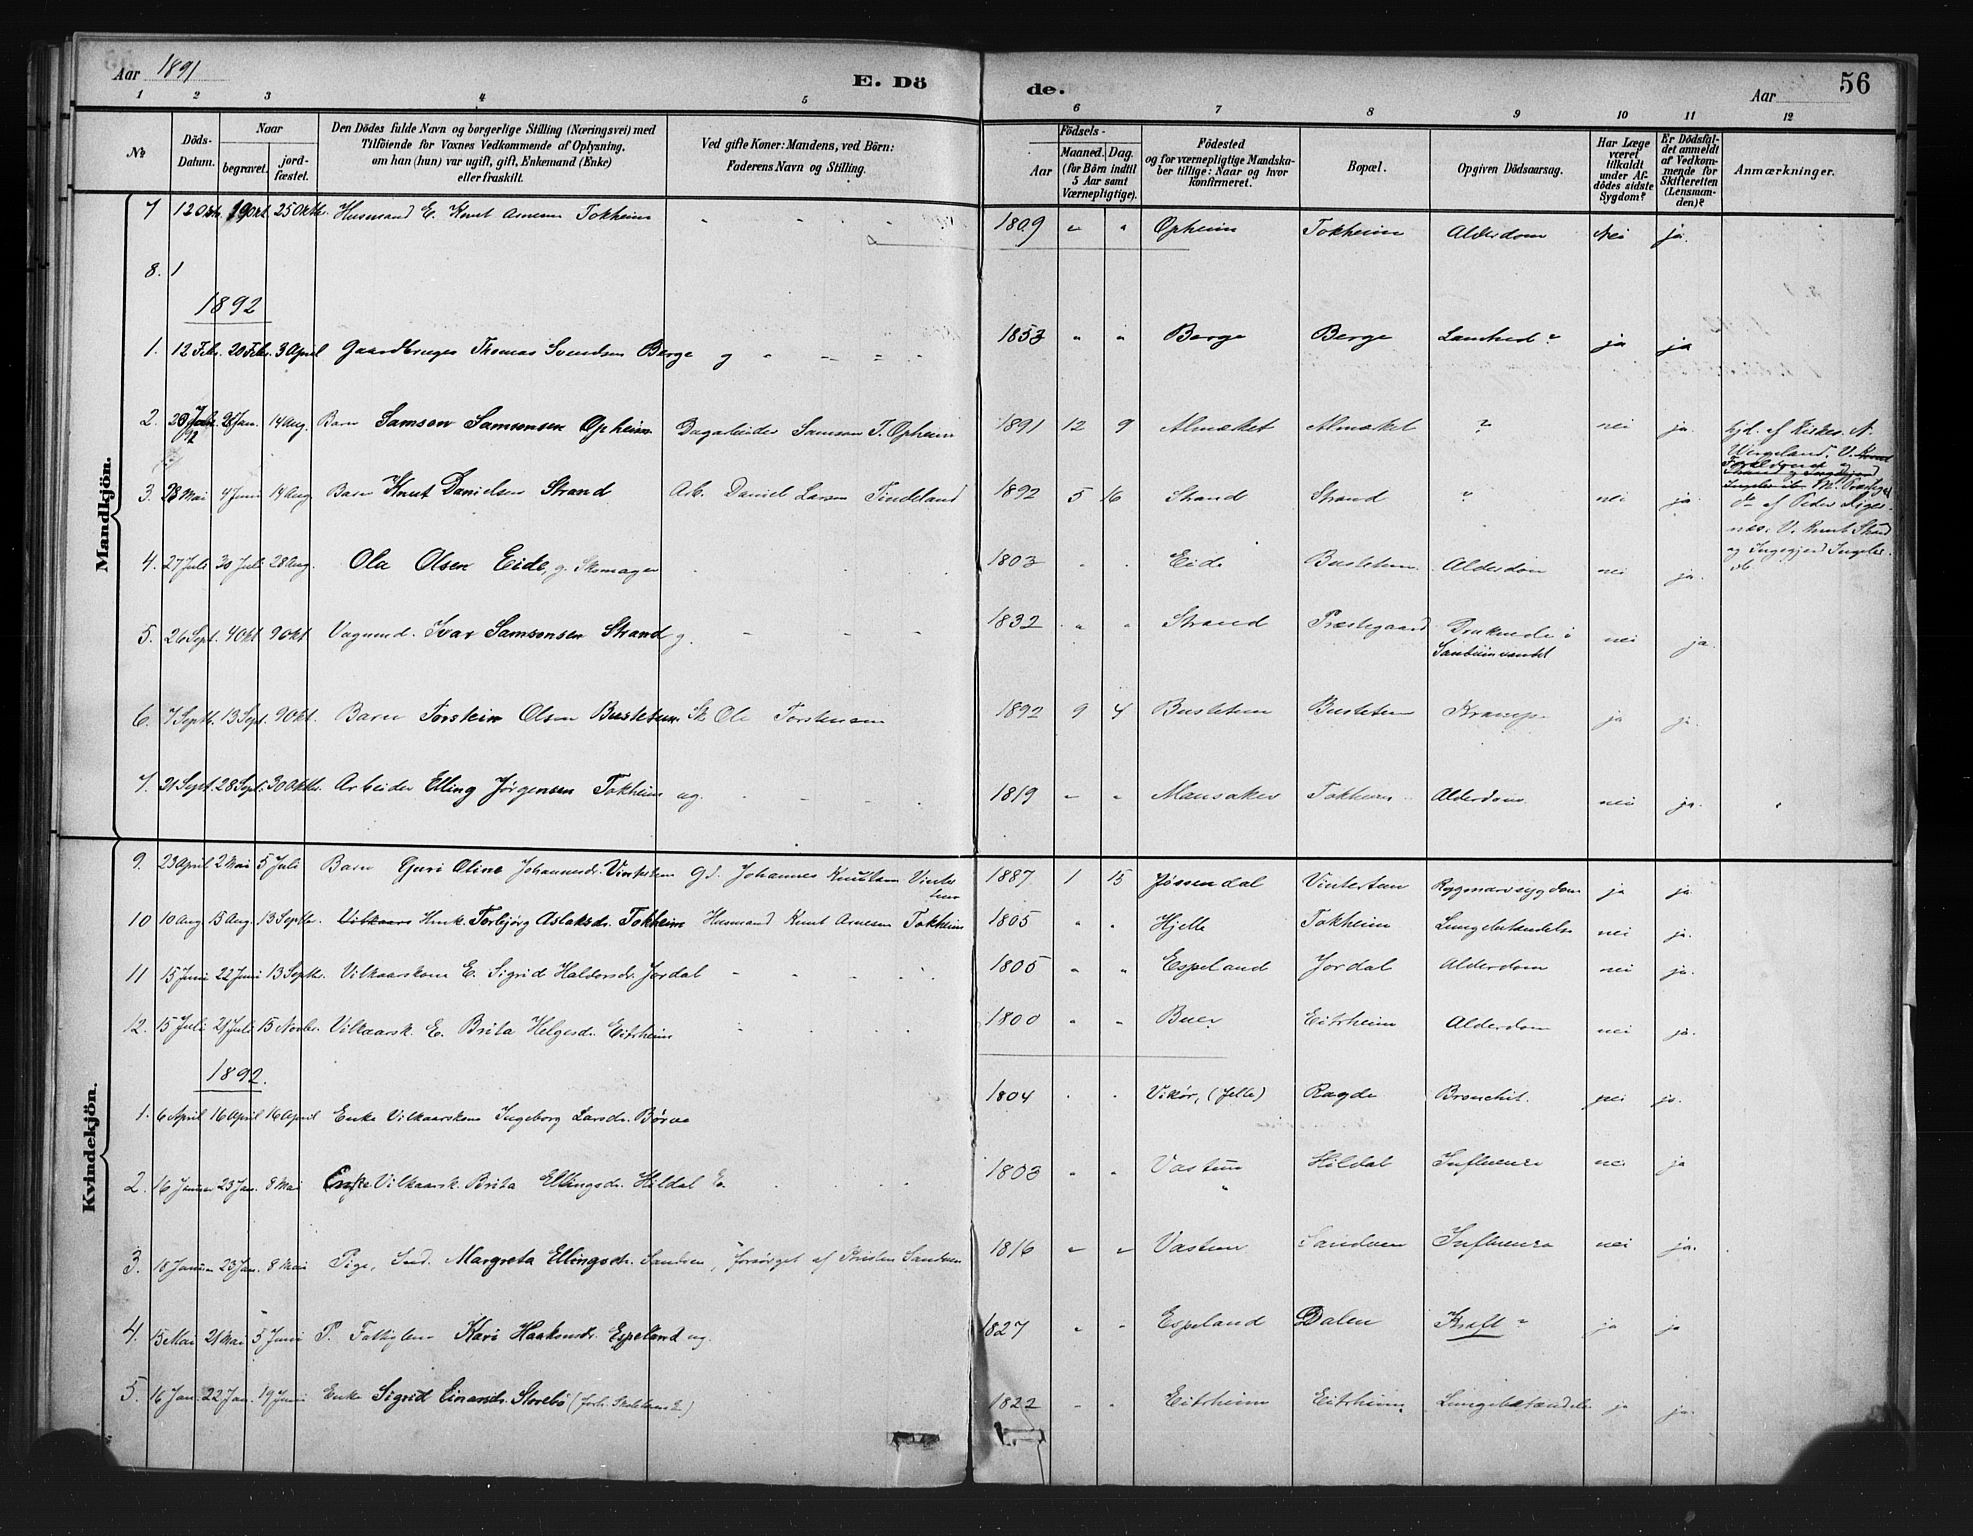 Aar 1891
E. Döde.
Aar
56
1 2 3 4 5 6 7 8 9 10 11 12
No
Döds-Datum.
Naar
begravet.
jord-fæstet.
Den Dödes fulde Navn og borgerlige Stilling (Næringsvei) med
Tilföiende for Voxnes Vedkommende af Oplysning,
om han (hun) var ugift, gift, Enkemand (Enke)
eller fraskilt.
Ved gifte Koner: Mandens, ved Börn:
Faderens Navn og Stilling.
Födsels-
Aar
Maaned. Dag.
(for Börn indtil
5 Aar samt
Værnepligtige).
Födested
og for værnepligtige Mandska-
ber tillige: Naar og hvor
konfirmeret.
Bopæl.
Opgiven Dödsaarsag.
Har Læge
været
tilkaldt
under Af-
dödes sidste
Sygdom?
Er Dödsfal-
det anmeldt
af Vedkom-
mende for
Skifteretten
(Lensman-
den)?
Anmærkninger.
Mandkjön.
7 12 Okt. 19 Okt. 25 Oktbr. Husmand E. Knut Arnesen Tokheim " " " 1809 " " Opheim Tokheim Alderdom Nei ja.
8. 1
1892
1. 12 Febr. 20 Febr. 3 April Gaardbruger Thomas Svendsen Berge g " " " 1853 " " Berge Berge ? ja ja
2. 26 Jan. 14 Aug. Barn Samson Samsonsen Opheim Dagarbeider Samson T. Opheim 1891 12 9 Almæket Almæket ? nei ja. hjd. af Kirkes. N.
3. 28 Mai 4 Juni 14 Aug Barn Knut Danielsen Strand Arb. Daniel Larsen Tindeland 1892 5 16 Strand Strand " nei ja
4. 27 Juli 30 Juli 28 Aug. Ola Olsen Eide, g. Skomager 1803 " " Eide Bustetun Alderdom nei ja.
og Ingegjerd
5. 26 Sept. 4 Okt 9 Okt. Vognmd. Ivar Samsonsen Strand g. " " " 1832 " " Strand Præstegaard Druknede i nei ja.
Sandvinvandet
6. 7 Septb. 13 Sept. 9 Okt. Barn Torstein Olsen Bustetun. Sk. Ole Torstensen 1892 9 4 Bustetun Bustetun Krampe ja ja.
7. 21 Sept. 28 Sept. 30 Oktbr. Arbeider Elling Jørgensen Tokheim ug. " " " 1819 " " Mansaker Tokheim Alderdom nei ja.
Kvindekjön.
9. 23 April 2 Mai 5 Juli Barn Guri Oline Johannesdr. Vintertun Gd. Johannes Knutsen Vinter 1887 1 15 Jøssendal Vintertun Rygmarvsygdom ja ja.
tun
10 10 Aug. 15 Aug. 13 Septbr. Torbjørg Aslaksdr. Tokheim Husmand Knut Arnesen Tokheim 1805 " " Hjelle Tokheim Lungebetændelse nei ja.
11 15 Juni 22 Juni 13 Septbr. Vilkaarskone E. Sigrid Haldorsdr. Jordal " " " 1805 " " Espeland Jordal Alderdom nei ja.
12. 15 Juli 21 Juli 15 Novbr. Vilkaarsk. E. Brita Helgesdr. Eitrheim " " " 1800 " " Buer Eitrheim Alderdom nei ja.
1892.
1. 6 April 16 April 16 April Enke Vilkaarskone Ingeborg Larsdr. Børve 1804 " " Vikør, (Jelle) Ragde Bronchit. nei ja.
2. 16 Januar 23 Jan. 8 Mai Enke Vilkaarsk. Brita Ellingsdr. Hildal E. 1803 " " Vastun Hildal Influenza nei ja
3. 18 Januar 23 Jan. 8 Mai Pige, Ind. Margreta Ellingsdr. Sandven, forsørget af Kristen Sandven 1816 " " Vastun Sandven Influenza nei ja.
4. 15 Mai 21 Mai 5 Juni P. Fattiglem Kari Haakonsdr. Espeland ug. 1827 " " Espeland Dalen Kræft ? ja ja
5. 16 Jan. 22 Jan. 19 Juni Enke Sigrid Einarsdr. Storebø 1822 " " Eitrheim Eitrheim. Lungebetændelse ja ja.